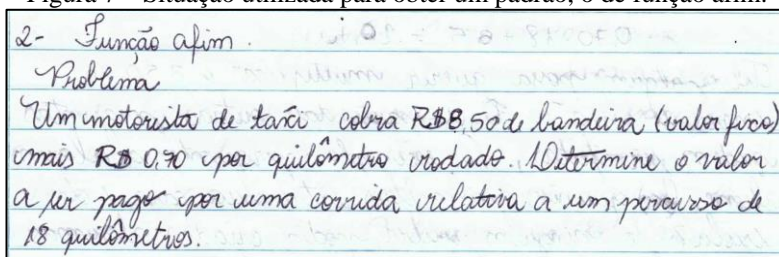 Figura 7 – Situação utilizada para obter um padrão, o de função afim.
2- Função afim.
Problema
Um motorista de taxi cobra R$8,50 de bandeira (valor fixo)
mais R$ 0,70 por quilômetro rodado. Determine o valor
a ser pago por uma corrida relativa a um percurso de
18 quilômetros.